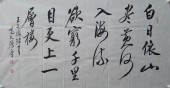 白日依山
盡黄河
入海流
欲窮千里
目更上一
層樓